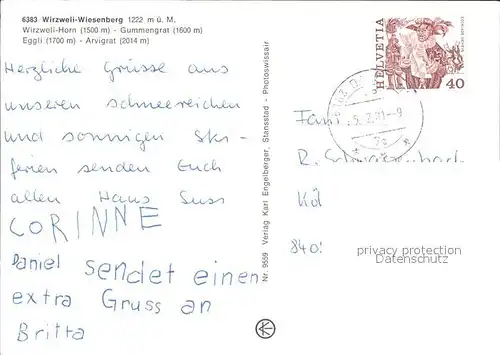 6383 Wirzweli-Wiesenberg 1222 m ü. M.
Wirzweli-Horn (1500 m) - Gummengrat (1600 m)
Eggli (1700 m) - Arvigrat (2014 m)
Herzliche Grüsse aus
unseren schneereichen
und sonnigen Ski-
ferien senden Euch
allen Hans Susi
CORINNE
Daniel sendet einen
extra Gruss an
Britta
Nr. 9559 Verlag Karl Engelberger, Stansstad - Photoswissair
HELVETIA
40
-9
Fam
R.
Köl
840
privacy protection
Datenschutz